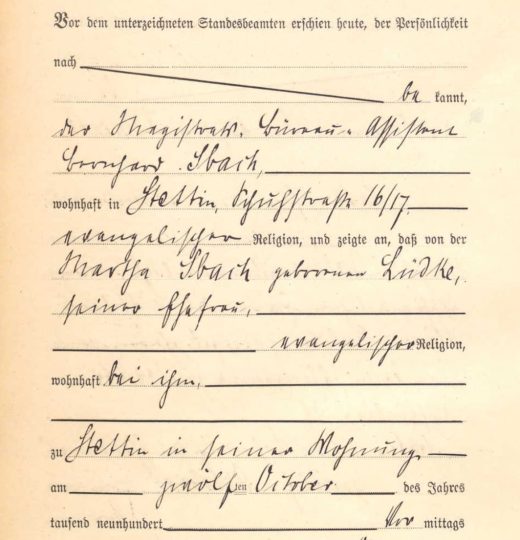 Vor dem unterzeichneten Standesbeamten erschien heute, der Persönlichkeit
nach
be kannt,
der Magistrats-Büreau-Assistent
Bernhard Sbach,
wohnhaft in Stettin, Schuhstraße 16/17
evangelischer Religion, und zeigte an, daß von der
Martha Sbach geborenen Lüdke,
seiner Ehefrau,
evangelischer Religion,
wohnhaft bei ihm,
zu Stettin in seiner Wohnung
am zwölften October des Jahres
tausend neunhundert Vor mittags